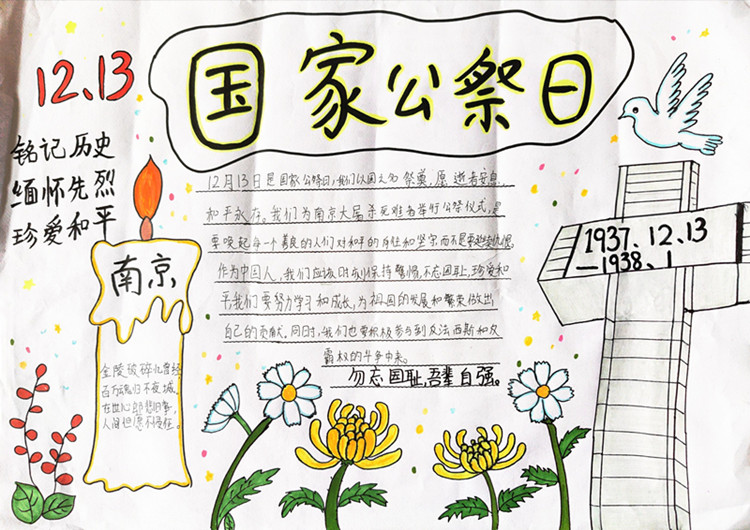 国家公祭日
12.13
铭记历史
缅怀先烈
珍爱和平
12月13日是国家公祭日,我们以国之名 祭奠,愿 逝者安息,
和平永存。我们为南京大屠杀死难者举行公祭仪式,是
要唤起每一个善良的人们对和平的向往和坚守而不是要延续仇恨。
作为中国人,我们应该时刻保持警惕,不忘国耻,珍爱和
平我们要努力学习和成长,为祖国的发展和繁荣做出
自己的贡献。同时,我们也要积极参与到反法西斯和反
霸权的斗争中来。
勿忘国耻,吾辈自强。
南京
金陵破碎几曾经
百万魂归不夜城
在世心
人间但愿不侵征。
1937、12.13
—1938、1